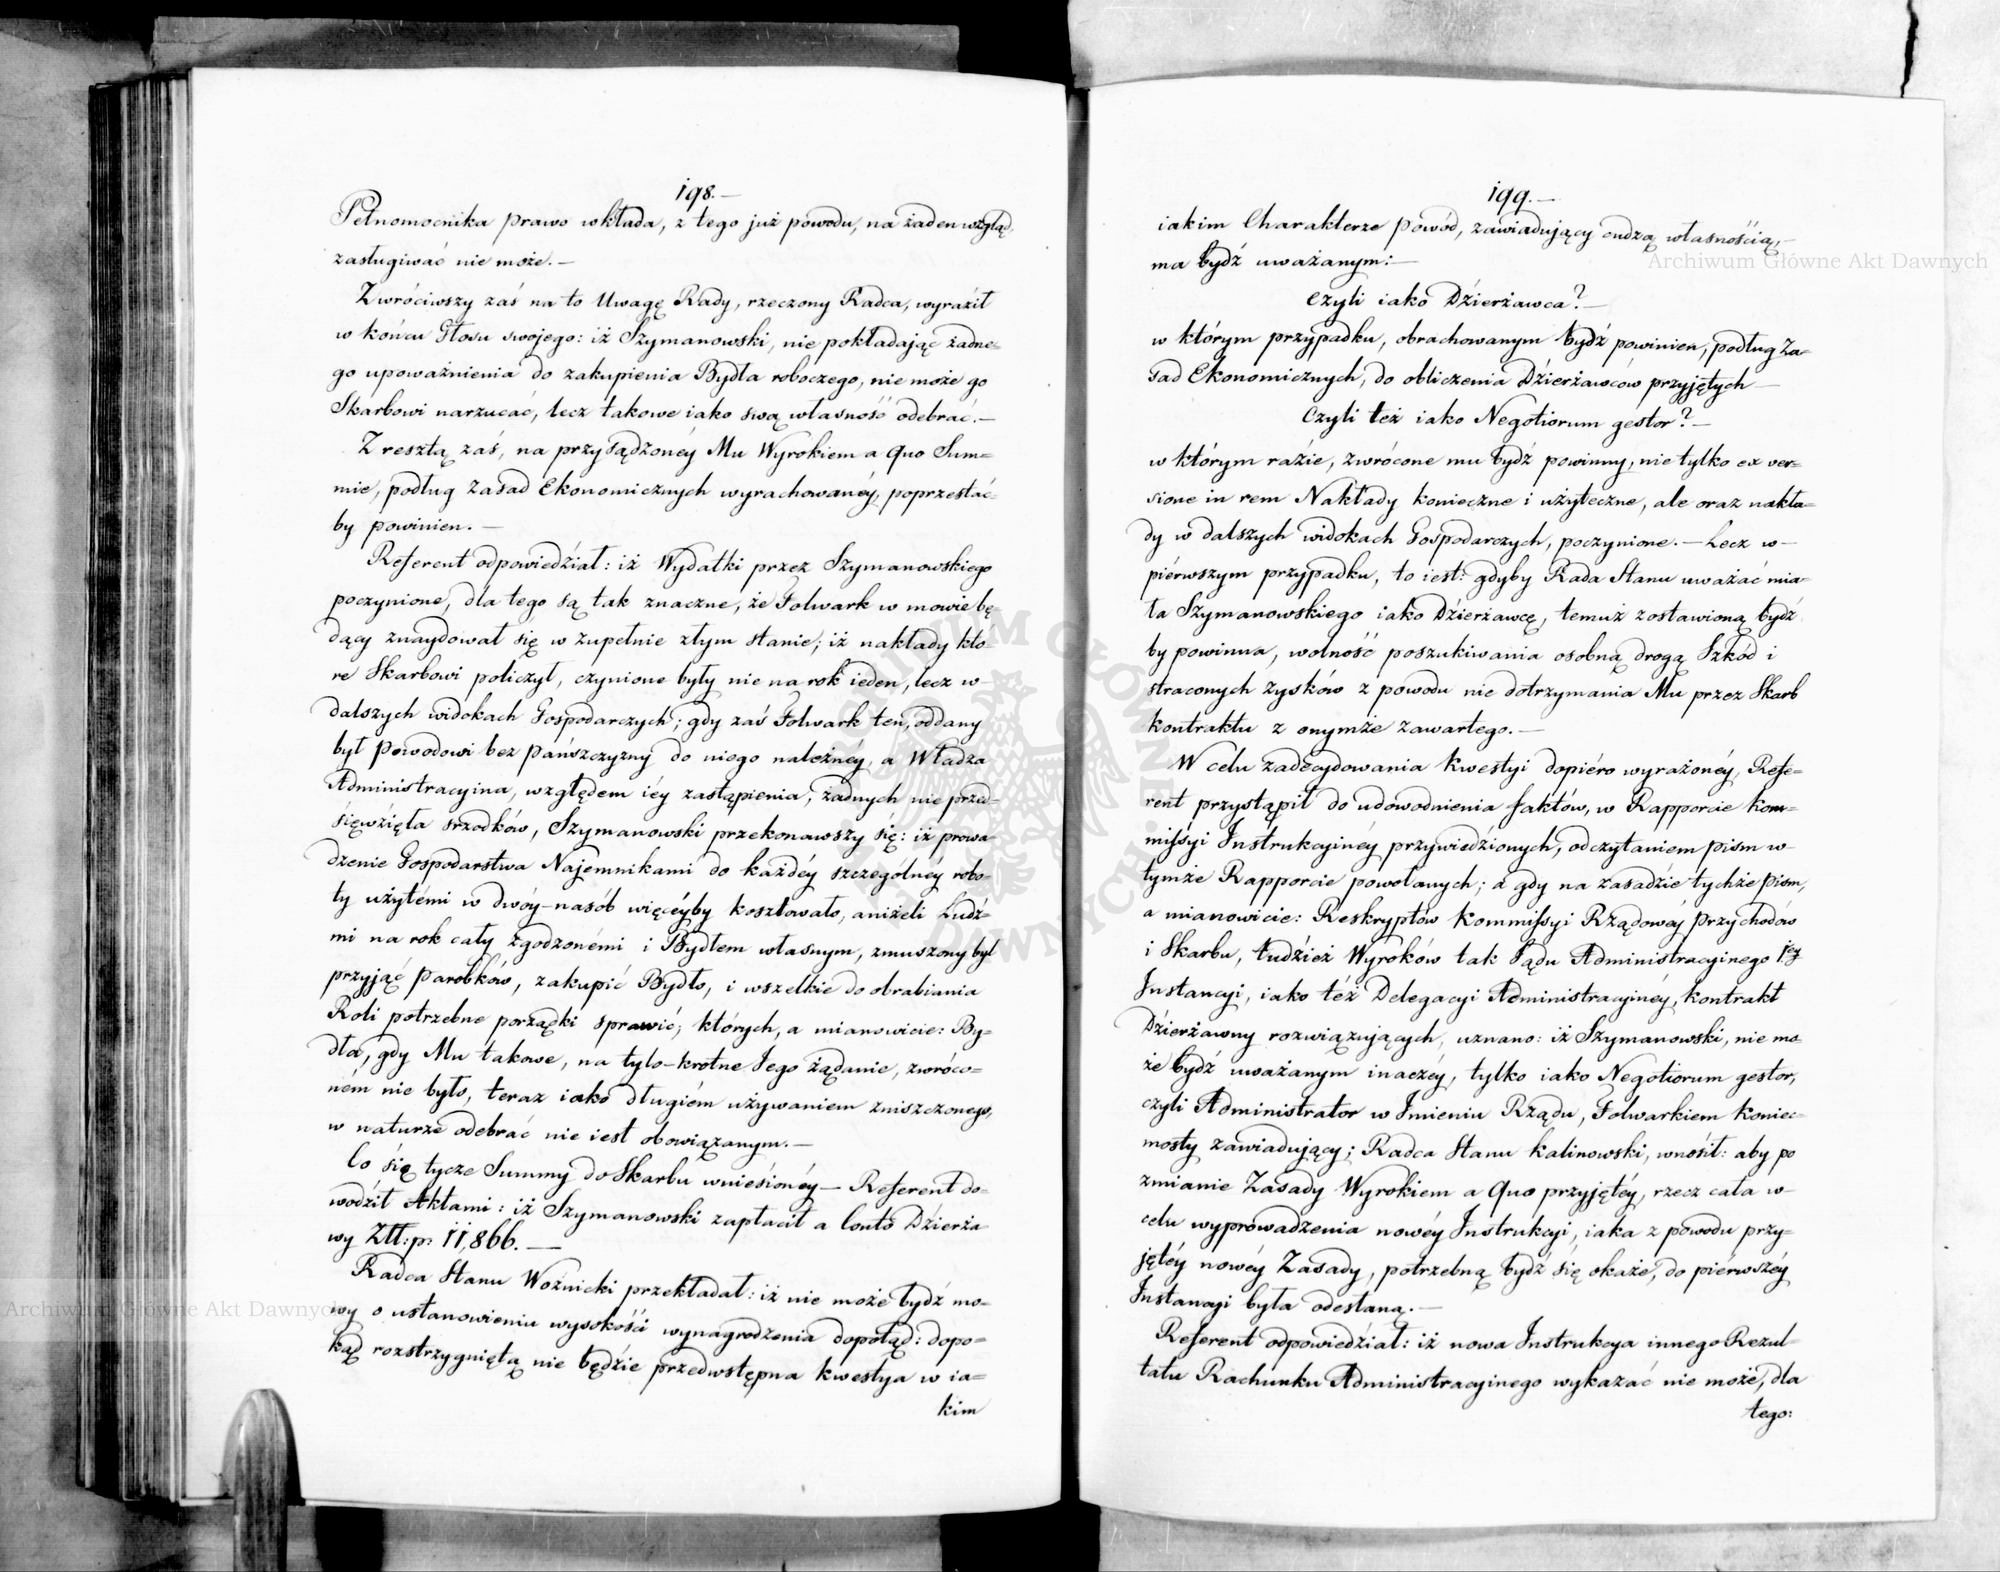 198.—
Pełnomocnika prawo wkłada, z tego już powodu, na żaden wzgląd
zasługiwać nie może.—
Zwróciwszy zaś na to Uwagę Rady, rzeczony Radca, wyraził
w końcu Głosu swojego: iż Szymanowski, nie pokładając żadne=
go upoważnienia do zakupienia Bydła roboczego, nie może go
Skarbowi narzucać, lecz takowe iako swą własność odebrać.—
Z resztą zaś, na przysądzonéy Mu Wyrokiem a quo Sum=
mie, podług Zasad Ekonomicznych wyrachowanéy, poprzestać=
by powinien.—
Referent odpowiedział: iż Wydatki przez Szymanowskiego
poczynione, dla tego są tak znaczne, że Folwark w mowie bę=
dący znaydował się w zupełnie złym stanie; iż nakłady któ=
re Skarbowi policzył, czynione były nie na rok ieden, lecz w—
dalszych widokach Gospodarczych; gdy zaś Folwark ten, oddany
był Powodowi bez Pańszczyzny do niego należnéy, a Władza
Administracyina, względem iéy zastąpienia, żadnych nie przed=
sięwzięła srzodków, Szymanowski przekonawszy się: iż prowa=
dzenie Gospodarstwa Najemnikami do każdéy szczególnéy robo=
ty użytémi w dwóy-nasób więcéyby kosztowało, aniżeli Ludź=
mi na rok cały zgodzonémi i Bydłem własnym, zmuszony był
przyjąć Parobków, zakupić Bydło, i wszelkie do obrabiania
Roli potrzebne porządki sprawić; których, a mianowicie: By=
dła, gdy Mu takowe, na tylo-krotne Jego żądanie, zwróco=
ném nie było, teraz iako długiém używaniem zniszczonego,
w naturze odebrać nie iest obowiązanym.—
Co się tycze Summy do Skarbu wniesionéy— Referent do=
wodził Aktami: iż Szymanowski zapłacił a Conto Dzierża=
wy Złł:p: 11,866.—
Radca Stanu Woźnicki przekładał: iż nie może bydź mo=
wy o ustanowieniu wysokości wynagrodzenia dopotąd: dopo=
kąd rozstrzygniętą nie będzie przedwstępna kwestya w ia=
kim
199.—
iakim Charakterze Powód, zawiadujący cudzą własnością,—
ma bydź uważanym:—
Czyli iako Dzierżawca?—
w którym przypadku, obrachowanym bydź powinien, podług Za=
sad Ekonomicznych, do obliczenia Dzierżawców przyjętych—
Czyli też iako Negotiorum gestor?—
w którym razie, zwrócone mu bydź powinny, nie tylko ex ver=
sione in rem Nakłady konieczne i użyteczne, ale oraz nakła=
dy w dalszych widokach Gospodarczych, poczynione.— Lecz w—
piérwszym przypadku, to iest: gdyby Rada Stanu uważać mia=
ła Szymanowskiego iako Dzierżawcę, temuż zostawioną bydź
by powinna, wolność poszukiwania osobną drogą Szkód i
straconych zysków z powodu nie dotrzymania Mu przez Skarb
kontraktu z onymże zawartego.—
W celu zadecydowania kwestyi dopiéro wyrażonéy, Refe=
rent przystąpił do udowodnienia faktów, w Rapporcie Kom=
missyi Instrukcyinéy przywiedzionych, odczytaniem pism w—
tymże Rapporcie powołanych; a gdy na zasadzie tychże pism,
a mianowicie: Reskryptów Kommissyi Rządowéy Przychodów
i Skarbu, tudzież Wyroków tak Sądu Administracyinego
Instancyi, iako też Delegacyi Administracyinéy, kontrakt
Dzierżawny rozwiązujących, uznano: iż Szymanowski, nie mo=
że bydź uważanym inaczéy, tylko iako Negotiorum gestor,
czyli Administrator w Imieniu Rządu, Folwarkiem Koniec=
mosty zawiadujący; Radca Stanu Kalinowski, wnosił: aby po
zmianie Zasady Wyrokiem a Quo przyjętéy, rzecz cała w—
celu wyprowadzenia nowéy Instrukcyi, iaka z powodu przy=
jętéy nowéy Zasady, potrzebną bydź się okaże, do piérwszéy
Instancyi była odesłaną.—
Referent odpowiedział: iż nowa Instrukcya innego Rezul=
tatu Rachunku Administracyinego wykazać nie może, dla
tego:
Archiwum Główne Akt Dawnych
Archiwum Główne Akt Dawnych